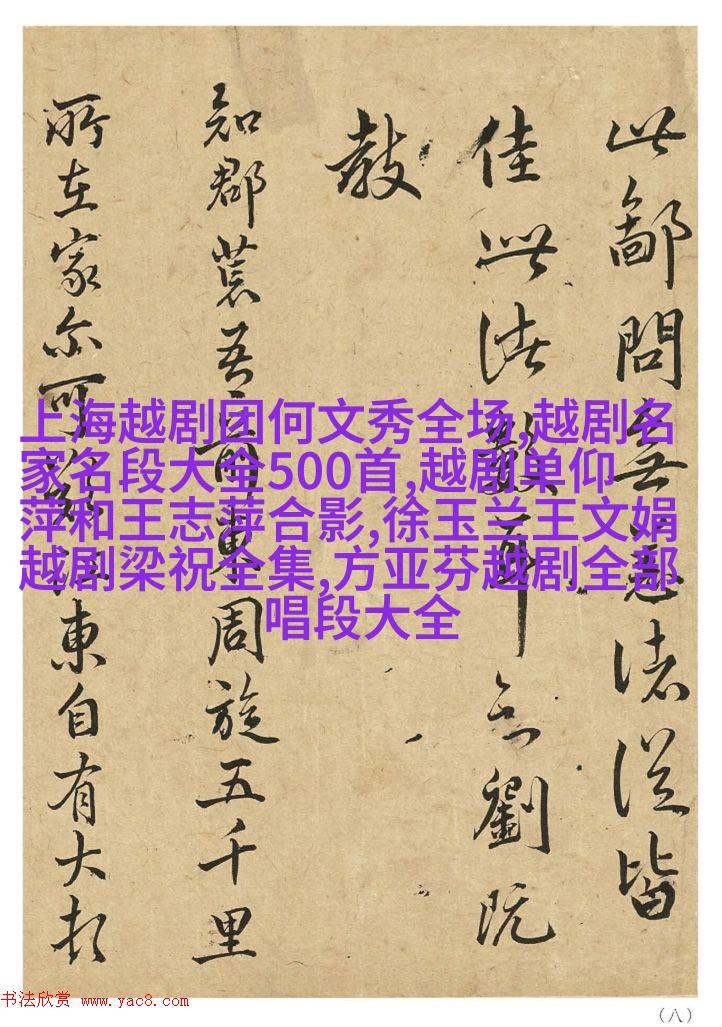 上海越剧团何文秀全场,越剧名
家名段大全500首,越剧单仰
萍和王志萍合影,徐玉兰王文娟
越剧梁祝全集,方亚芬越剧全部
唱段大全
此鄙問無恙諸從皆
佳此數耶劉既
教
知郡荒吾前東周旋五千里
所在家亦可東自有大
书法欣赏 www.yac8.com
（八）